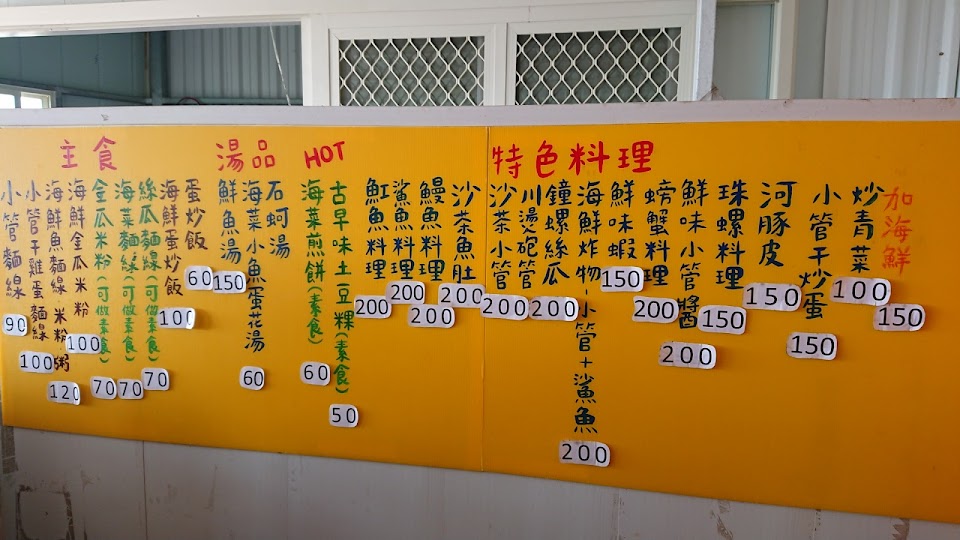 主食
小管麵線
90
小管干雞蛋麵線
100
海鮮魚麵線·米粉·粥
120
海鮮金瓜米粉
100
金瓜米粉(可做素食)
70
海菜麵線(可做素食)
70
絲瓜麵線(可做素食)
70
海鮮蛋炒飯
100
蛋炒飯
60
湯品
鮮魚湯
150
海菜小魚蛋花湯
60
石蚵湯
HOT
海菜煎餅(素食)
60
古早味土豆粿(素食)
50
魟魚料理
200
鯊魚料理
200
鰻魚料理
200
沙茶魚肚
200
特色料理
沙茶小管
200
川燙砲管
鐘螺絲瓜
200
海鮮炸物-小管+鯊魚
200
鮮味蝦
150
螃蟹料理
200
鮮味小管醬
200
珠螺料理
150
河豚皮
150
小管干炒蛋
150
炒青菜
100
加海鮮
150